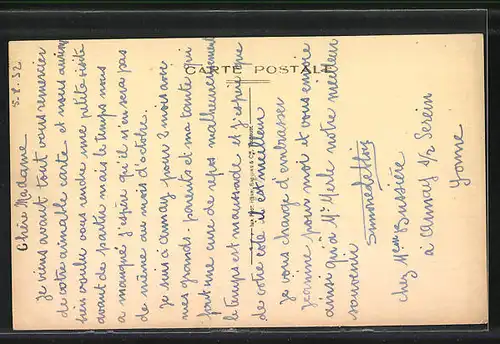 5.8.32
Chère Madame
Je viens avant tout vous remercier
de votre aimable carte et nous aurions
bien voulu vous rendre une petite visite
avant de partir mais le temps nous
a manqué j'espère qu'il n'en sera pas
de même au mois d'octobre.
Je suis à Annay pour 2 mois avec
mes grands-parents et ma tante qui
font une cure de repos malheureusement
le temps est maussade et j'espère que
de votre côté il est meilleur
Je vous charge d'embrasser
Jeannine pour moi et vous envoie
ainsi qu'à Mr Merle notre meilleur
souvenir
Simone
chez Mme Bussière
à Annay s/s Serein
Yonne
CARTE POSTALE